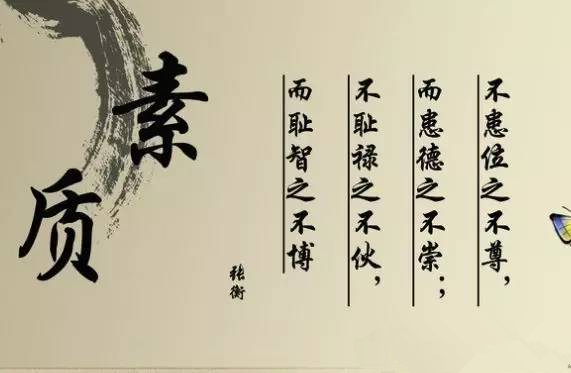 不患位之不尊，
而患德之不崇；
不耻禄之不伙，
而耻智之不博
张衡
素质